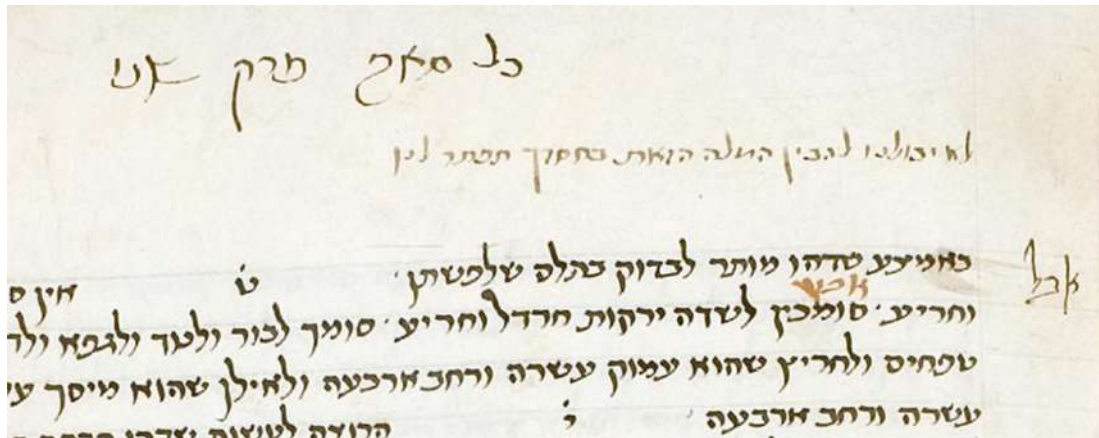 כל סאה פרק שני
לא יכולנו להבין המלה הזאת בחסדך תפתר לנו
אבל
באמיצע שדהו מותר לבדוק בתלם שלפשתן ט אין
וחריע סומכין לשדה ירקות חרדל וחריע סומך לבור ולניר ולגפא
טפחים ולחריץ שהוא עמוק עשרה ורחב ארבעה ולאילן שהוא מיסך
עשרה ורחב ארבעה י הרוצה לעשות שדהו